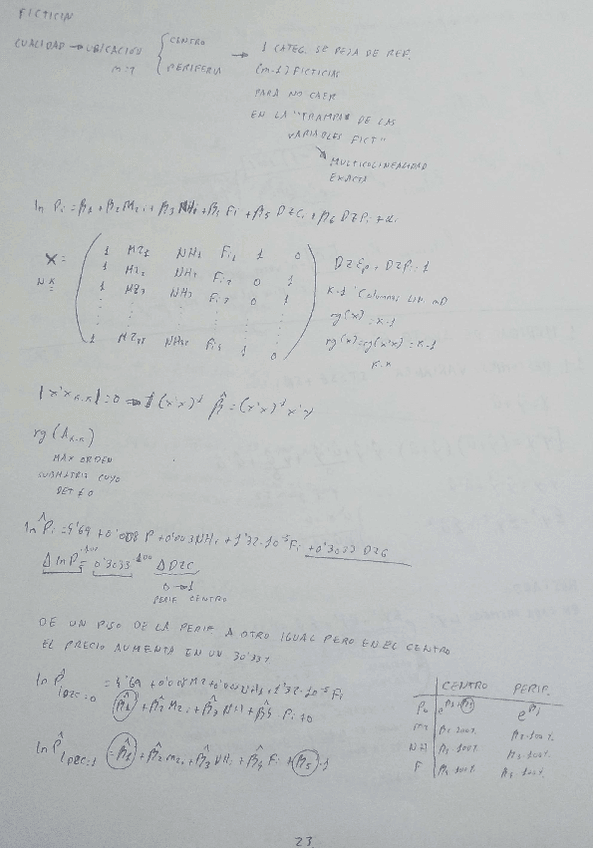 FICTICIA
CUALIDAD → UBICACIÓN { CENTRO → 1 CATEG. SE DEJA DE REF.
PERIFERIA (m-1) FICTICIAS
PARA NO CAER
EN LA "TRAMPA DE LAS
VARIABLES FICT"
MULTICOLINEALIDAD
EXACTA
ln Pi = β1 + β2 M2i + β3 NHi + β4 Fi + β5 DZCi + β6 DZPi + ui
X =
N×K
1 M21 NH1 Fi1 1 0
1 M22 NH2 Fi2 0 1
1 M23 NH3 Fi3 0 1
1 NH55 1 0
K-1 Columnas Lin. inD
rg(X) = K-1
rg(X) = rg(X'X) = K-1
K×K
|X'X K×K| = 0 → ∄ (X'X)⁻¹ β̂ = (X'X)⁻¹ X'Y
rg(A K×K)
MAX ORDEN
SUBMATRIZ CUYO
DET ≠ 0
ln P̂i = 4'69 + 0'008 P + 0'003 NHi + 1'32·10⁻⁵ Fi + 0'3033 DZC
Δ ln P ·100 = 0'3033 ·100 Δ DZC
0 → 1
PERIF CENTRO
DE UN PISO DE LA PERIF A OTRO IGUAL PERO EN EL CENTRO
EL PRECIO AUMENTA EN UN 30'33%
ln P̂ |DZC=0 = 4'69 + 0'008 M2 + 0'003 NHi + 1'32·10⁻⁵ Fi
β̂1 + β̂2 M2i + β̂3 NHi + β̂4 Fi + 0
ln P̂ |DZC=1 = β̂1 + β̂2 M2i + β̂3 NHi + β̂4 Fi + β̂5 · 1
CENTRO PERIF.
NH
F
23